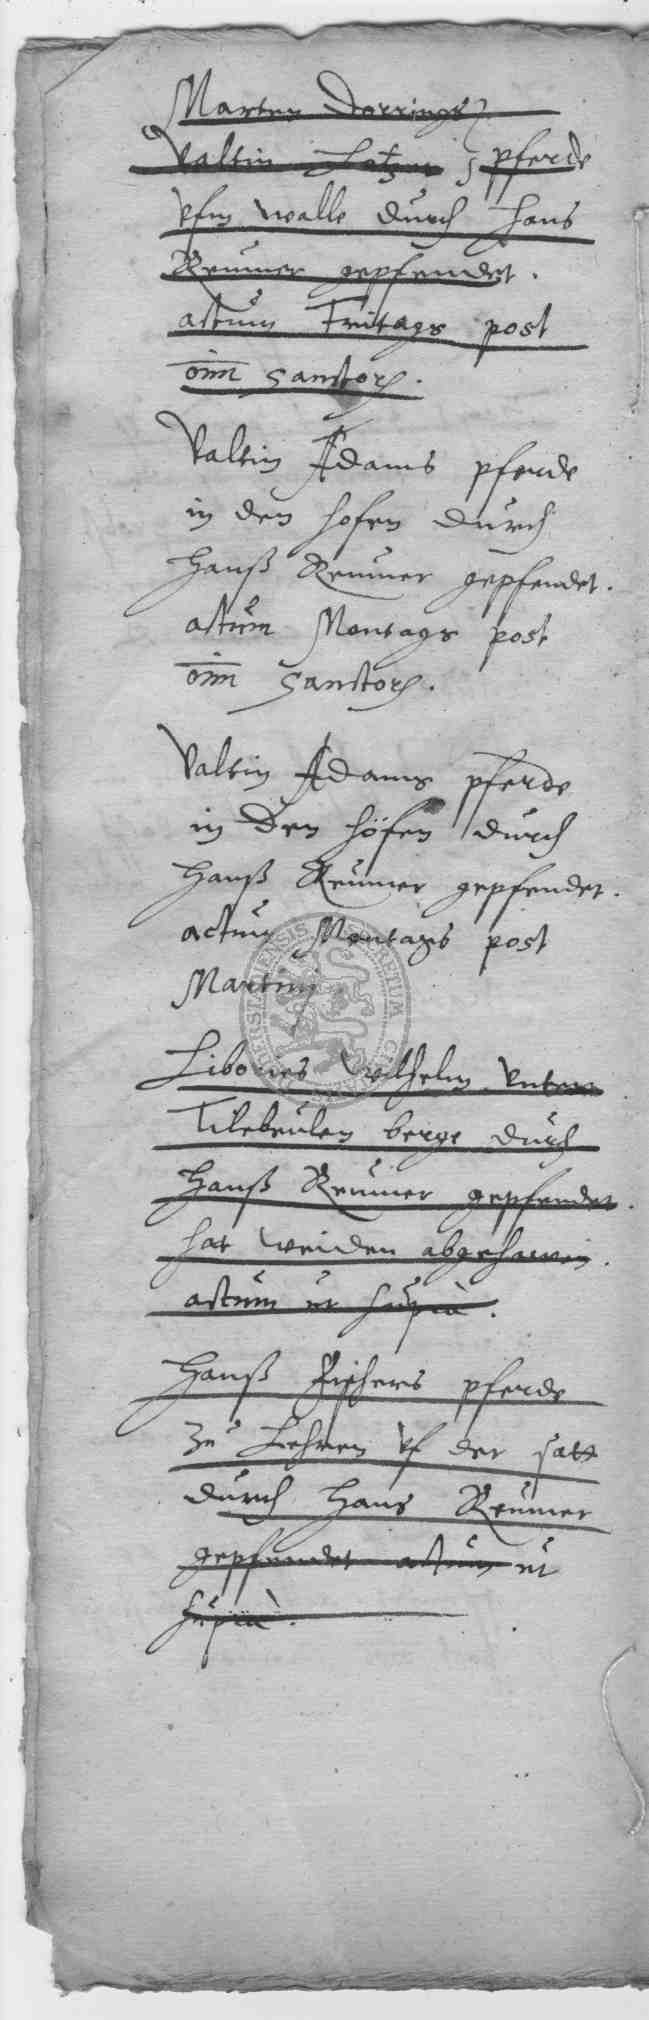 Marten Dorrings
Valtin Lotzen pferde
vfm walle durch Hans
Reumer gepfendet.
actum Fritags post
om̄ Sanctor.
Valtin Adams pferde
in den hofen durch
Hanß Reumer gepfendet.
actum Montags post
om̄ Sanctor.
Valtin Adams pferde
in den höfen durch
Hanß Reumer gepfendet.
actum Montags post
Martinj
Libories Wilhelm vnterm
Tilebeulen berge durch
Hanß Reumer gepfendet.
hat weiden abgehawen.
actum ut supra.
Hanß Fischers pferde
zu Lehnen vf der satt
durch Hans Reumer
gepfendet actum ut
supra.